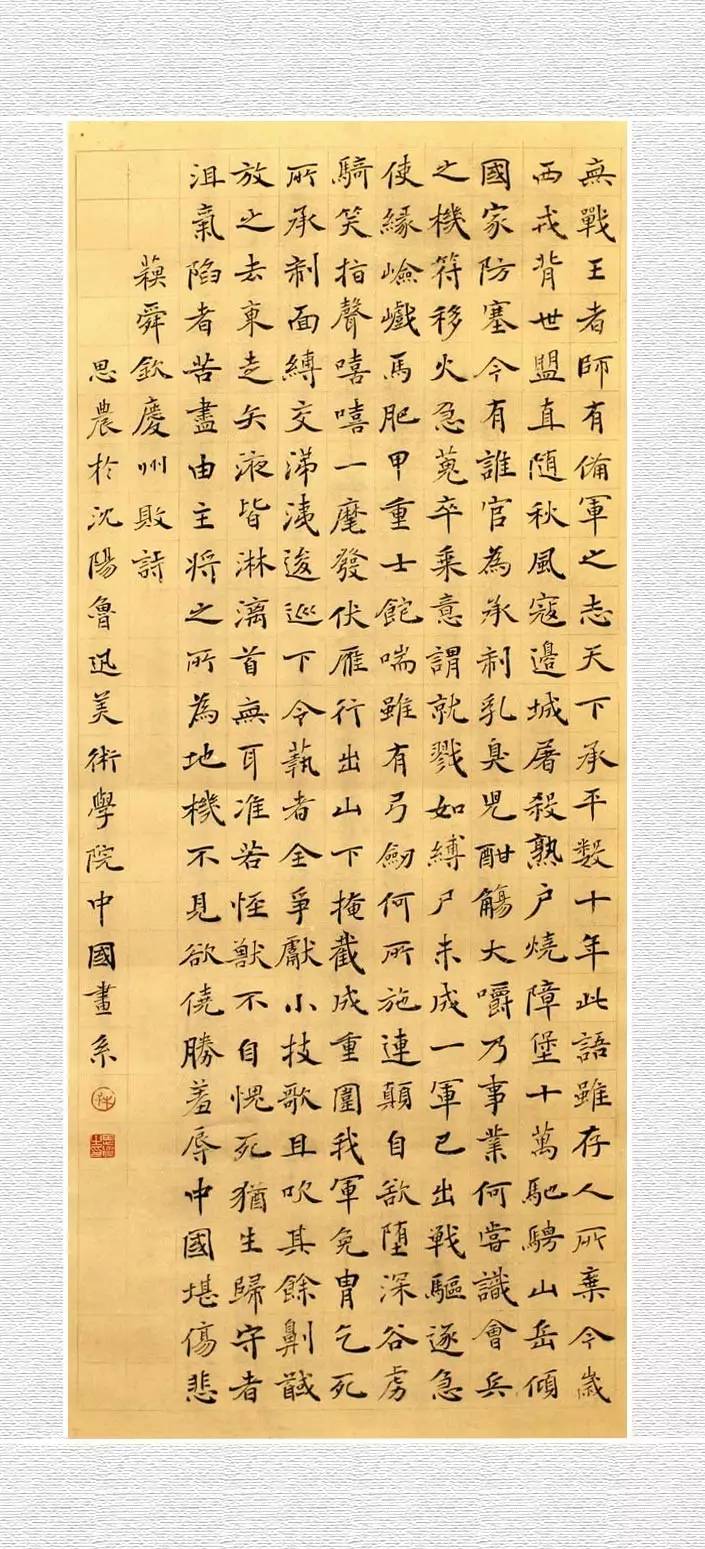 無戰王者師有備軍之志天下承平数十年此語雖存人所棄今歲
西戎背世盟直随秋風寇邉城屠殺熟户燒障堡十萬馳騁山岳傾
國家防塞今有誰官為承制乳臭児酣觴大嚼乃事業何嘗識會兵
之機符移火急蒐卒乗意謂就戮如縛尸未成一軍已出戰驅逐急
使縁嶮巇馬肥甲重士飽喘雖有弓劒何所施連顛自欲堕深谷虏
騎笑指聲嘻嘻一麾發伏雁行出山下掩截成重圍我軍免冑乞死
所承制面縛交涕洟逡巡下令藝者全爭獻小技歌且吹其餘劓馘
放之去東走矢液皆淋漓首無耳准若怪獣不自愧死猶生歸守者
沮氣陷者苦盡由主将之所為地機不見欲僥勝羞辱中國堪傷悲
蘓舜欽慶州敗詩
思農於沈陽魯迅美術學院中國畫系